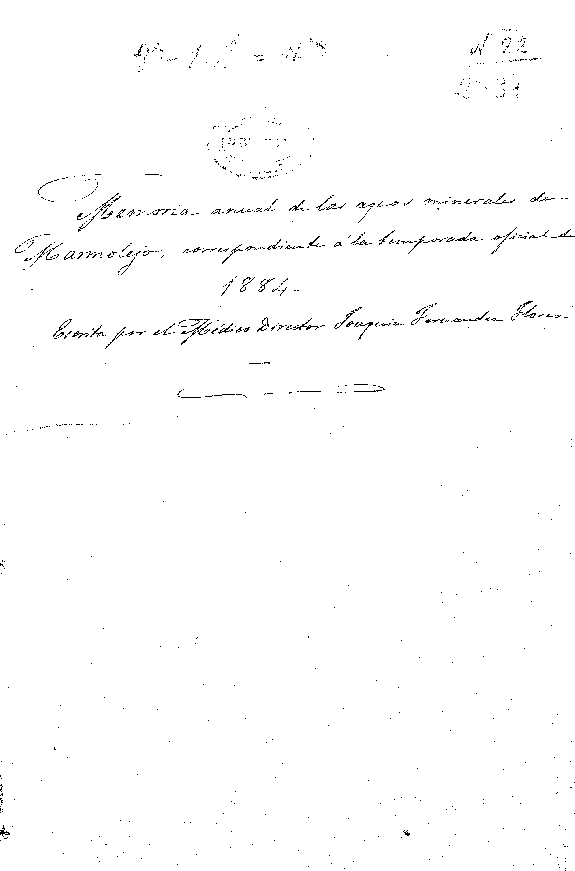 N 22
Memoria anual de las aguas minerales de
Marmolejo, correspondiente á la temporada oficial de
1884.
Escrita por el Médico Director Joaquin Fernandez Flores